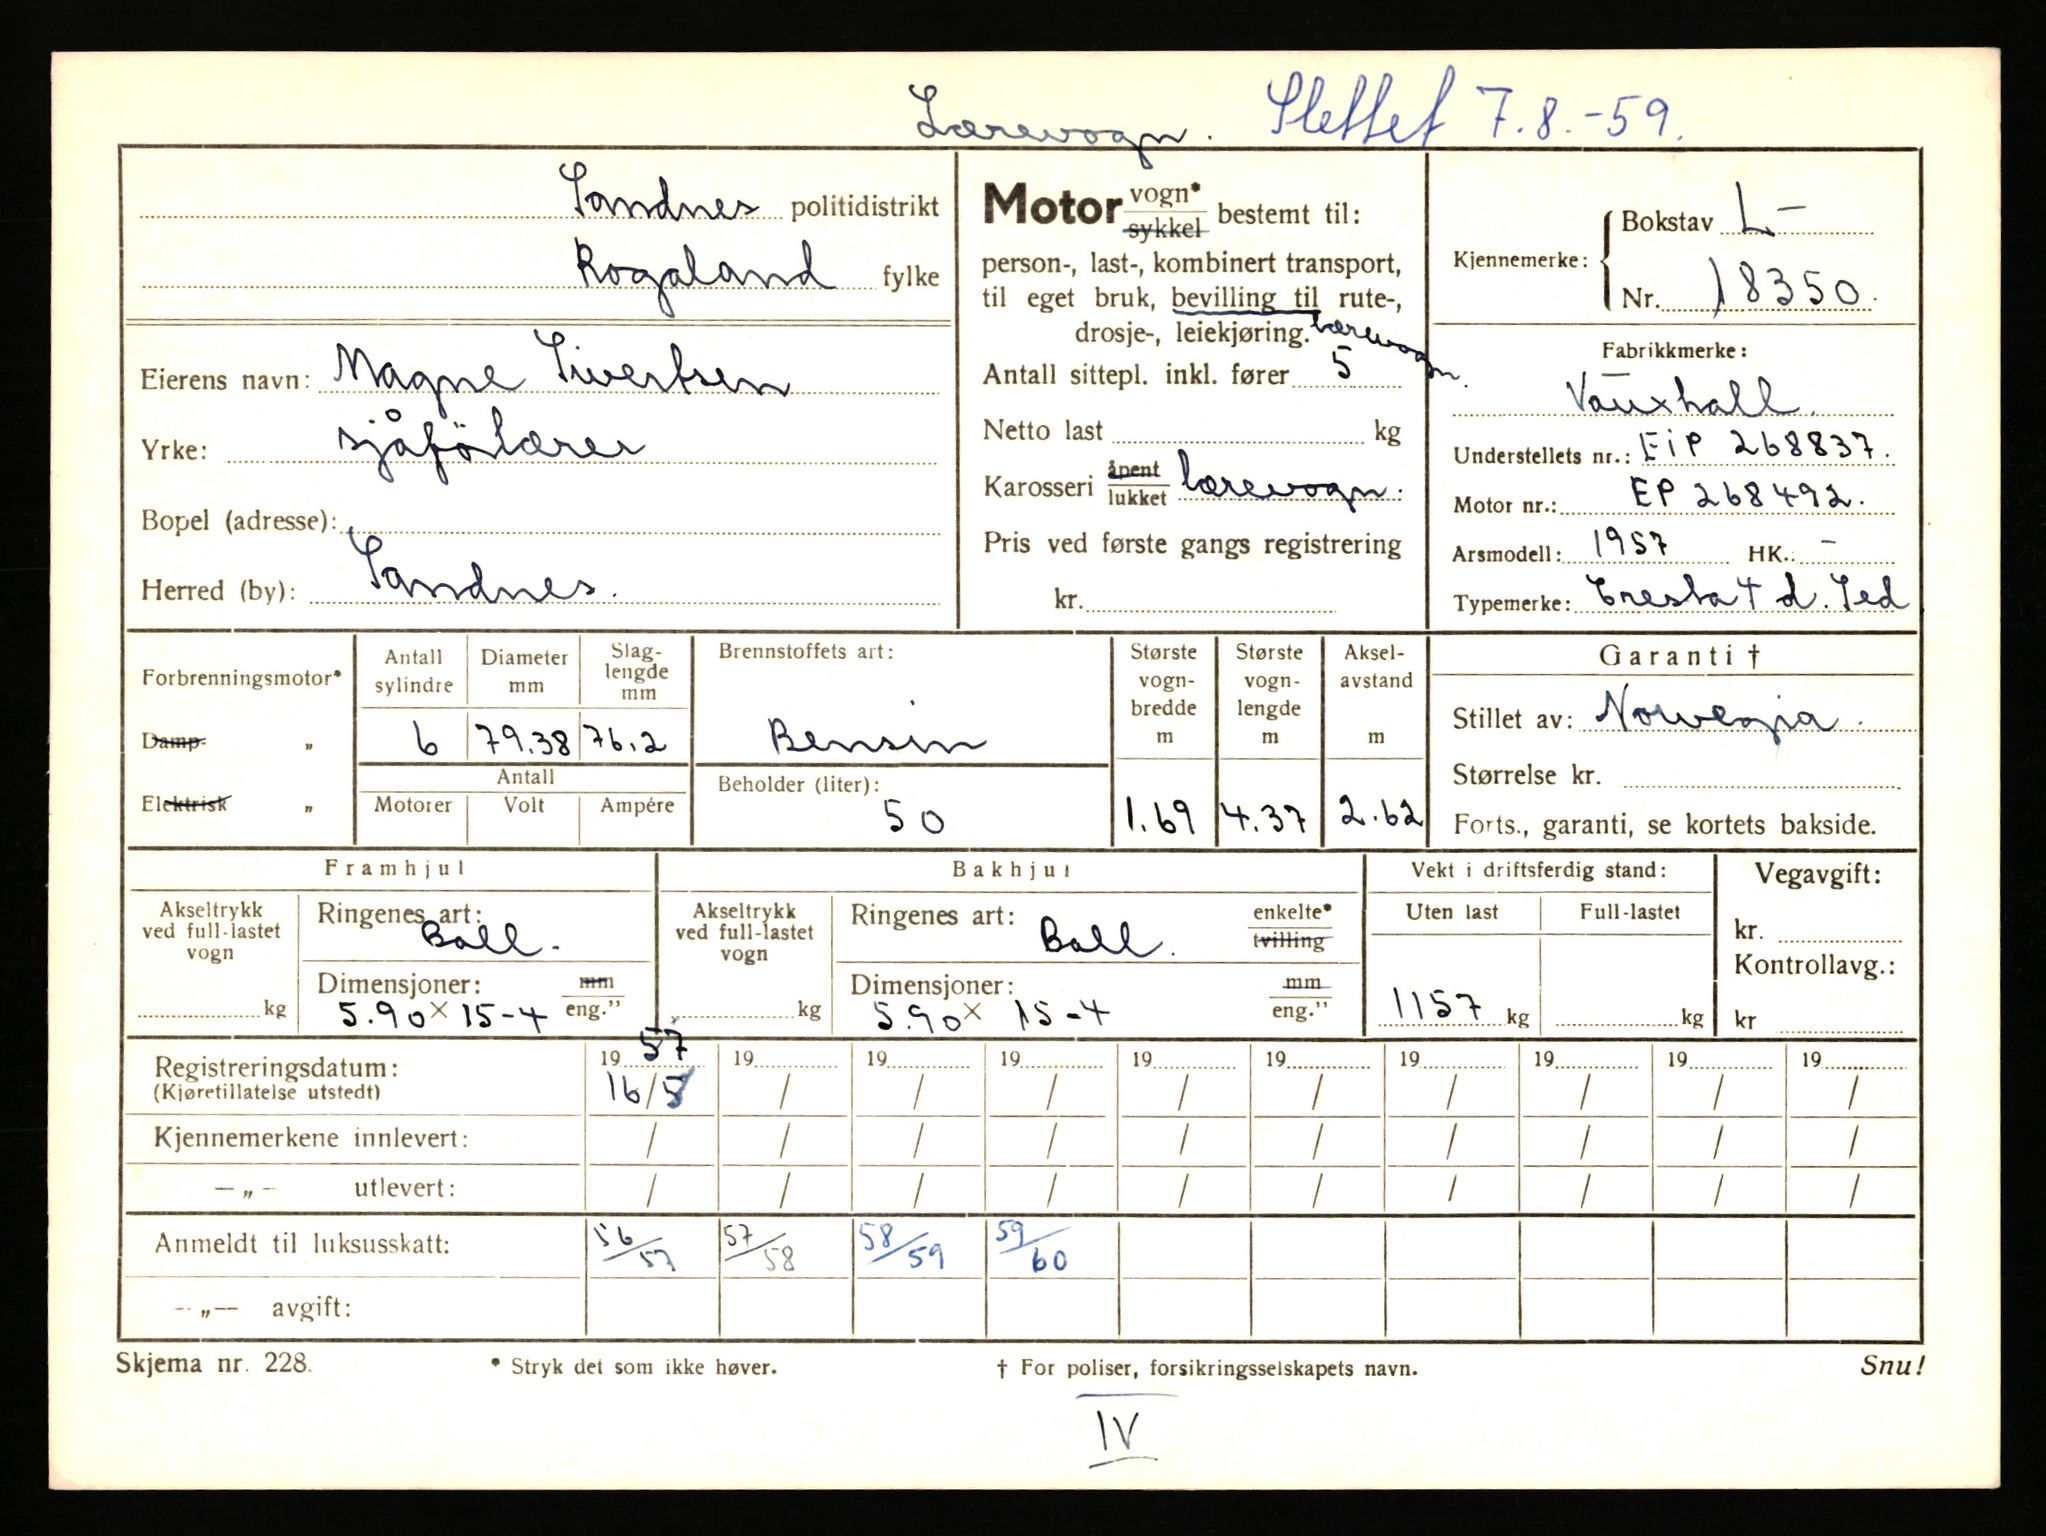 Lærevogn. Slettet 7.8.-59.
Sandnes politidistrikt
Rogaland fylke
Eierens navn: Magne Sivertsen
Yrke: sjåförlærer
Bopel (adresse):
Herred (by): Sandnes.
Motor vogn* sykkel bestemt til:
person-, last-, kombinert transport,
til eget bruk, bevilling til rute-,
drosje-, leiekjøring. lærevogn.
Antall sittepl. inkl. fører 5
Netto last kg
Karosseri åpent lukket lærevogn.
Pris ved første gangs registrering
kr.
Kjennemerke: Bokstav L-
Nr. 18350.
Fabrikkmerke:
Vauxhall.
Understellets nr.: EiP 268837.
Motor nr.: EP 268492.
Arsmodell: 1957 HK.: -
Typemerke: Cresta 4 d. Sed
Forbrenningsmotor*
Damp- „
Elektrisk „
Antall sylindre Diameter mm Slag-lengde mm
6 79.38 76.2
Antall
Motorer Volt Ampére
Brennstoffets art:
Bensin
Beholder (liter):
50
Største vogn-bredde m
1.69
Største vogn-lengde m
4.37
Aksel-avstand m
2.62
Garanti †
Stillet av: Norvegia.
Størrelse kr.
Forts., garanti, se kortets bakside.
Framhjul
Akseltrykk ved full-lastet vogn
kg
Ringenes art:
Ball.
Dimensjoner: mm eng.”
5.90 x 15-4
Bakhjul
Akseltrykk ved full-lastet vogn
kg
Ringenes art: enkelte* tvilling
Ball.
Dimensjoner: mm eng.”
5.90 x 15-4
Vekt i driftsferdig stand:
Uten last Full-lastet
1157 kg kg
Vegavgift:
kr.
Kontrollavg.:
kr
Registreringsdatum: 19 57 19 19 19 19 19 19 19 19 19
(Kjøretillatelse utstedt) 16/5 / / / / / / / / /
Kjennemerkene innlevert: / / / / / / / / / /
—„— utlevert: / / / / / / / / / /
Anmeldt til luksusskatt: 56/57 57/58 58/59 59/60
—„— avgift:
Skjema nr. 228. * Stryk det som ikke høver. † For poliser, forsikringsselskapets navn. Snu!
IV